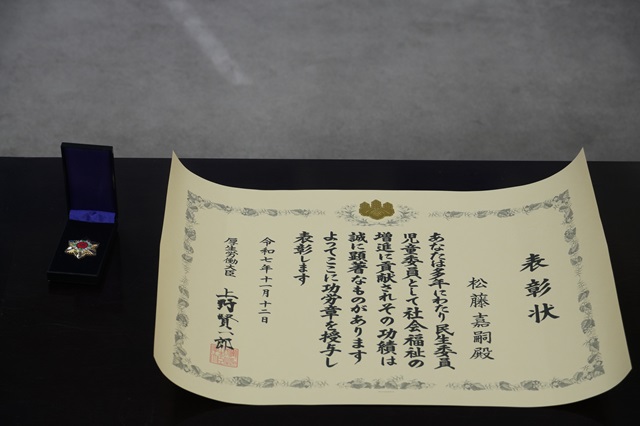 表彰状
松藤嘉嗣殿
あなたは多年にわたり民生委員
児童委員として社会福祉の
増進に貢献されその功績は
誠に顕著なものがあります
よってここに功労章を授与し
表彰します
令和七年十一月十二日
厚生労働大臣 上野賢一郎